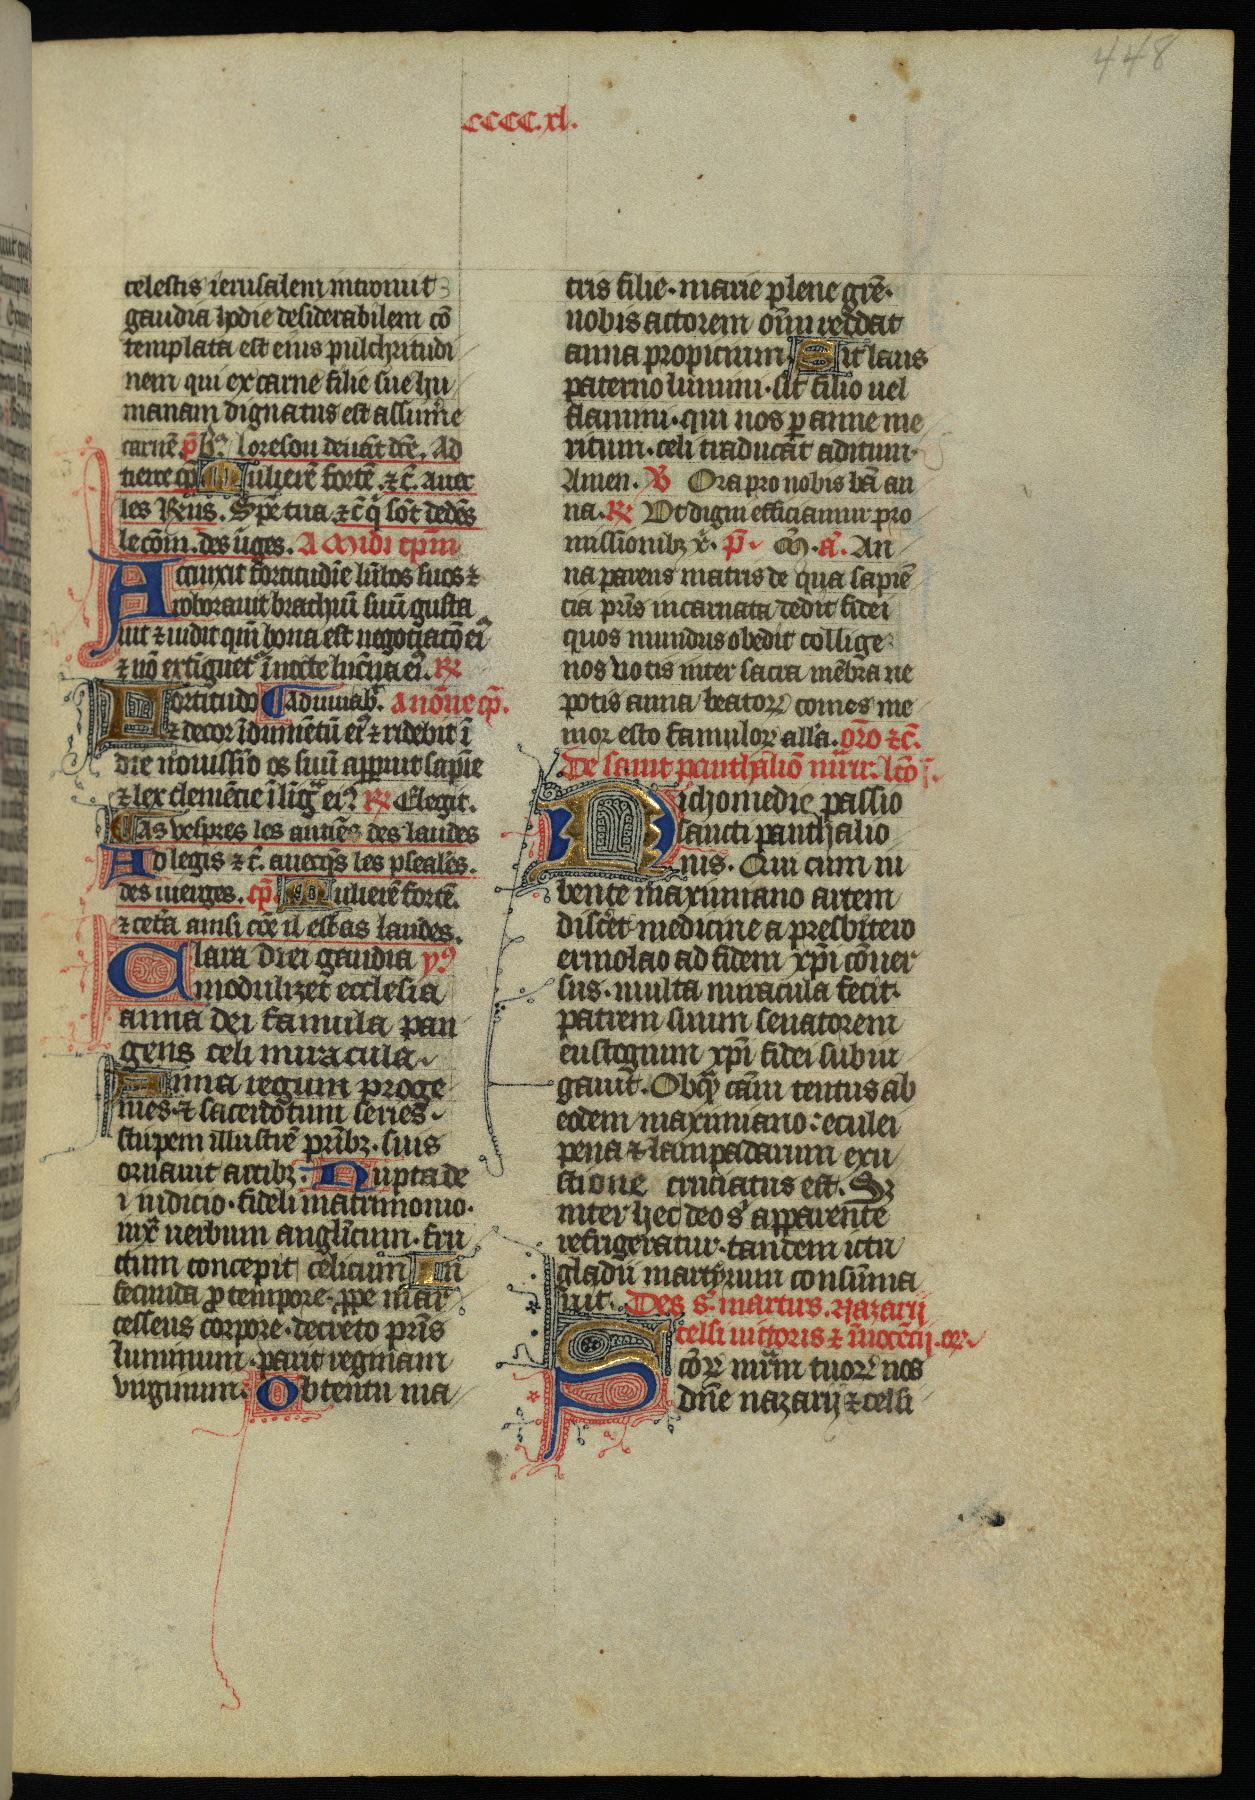 448
cccc.xl.
celestis ierusalem introiuit
gaudia ipdie desiderabilem cō
templata est eius pulchritudi
nem qui ex carne filie sue hu
manam dignatus est assum̄e
carnē p̄ loreson deuāt dc̄e. Ad
tierce cp̄ Mulierē fortē. ⁊ c̄. auec
les Rn̄s. Spē tua ⁊ c̄ q̄ sōt dedēs
le cōm. des ūges. A Midi cp̄m
Accinxit fortitudīe lūbos suos ⁊
roborauit brachiū suū gusta
uit ⁊ uidit qm̄ bona est negotiacō ei᷒
⁊ nō extīguet᷑ ī nocte luc̄na ei᷒. R̄
Fortitudo Adiuuab᷑. a nōne cp̄.
⁊ decor īdumētū ei᷒ ⁊ ridebit ī
die nouissīo os suū apparuit sapiē
⁊ lex clemēcie ī līgᵃ ei᷒ R̄ Elegit.
As vespres les antiēs des laudes
Ad legis ⁊ c̄. auecq̄s les psealēs.
des uierges. cp̄. Mulierē fortē.
⁊ cetā ainsi cōe il est as laudes.
Clara diei gaudia y᷒
modulizet ecclesia
anna dei famula pan
gens celi miracula
Anna regum proge
nies. ⁊ sacerdotum series
stirpem illustrē prībꝫ. suis
ornauit actibꝫ. Nupta de
i nidicio. fideli matrimonio.
iux̄ uerbum anglicum. fru
ctum concepit celicum In
fecunda ꝓ tempore. ꝓpe mar
cessens corpore. decreto prīs
luminum. parit reginam
virginum. Obtentu ma
tris filie. marie plene grē.
nobis actorem om̄iū reddat
anna propicium. Sit laus
paterno lumini. sit filio uel
flamini. qui nos p anne me
ritum. celi traducāt aditum.
Amen. V Ora pro nobis bā an
na. R̄ Vt digni efficiamur pro
missionibꝫ x̄. p̄. M̄. a᷒. An
na parens matris de qua sapiē
cia prīs incarnata dedit fidei
quos mundus obedit collige
nos votis inter sacra mēbra ne
potis anna beatoꝝ comes me
mor esto famuloꝝ alla. or̄o ⁊ c̄.
De saint panthaliō m̄rir. lcō
Nichomedie passio
sancti panthalio
nis. Qui cum iu
bente maximiano artem
discēt medicine a presbitero
ermolao ad fidem xp̄i cōuer
sus. multa miracula fecit.
patrem suum senatorem
eustogium xp̄i fidei subiu
gauit. Ob q̄ cām tentus ab
eodem maximiano: eculei
pena ⁊ lampadarum exu
stione cruciatus est. Sꝫ
inter hec deo s᷒ apparente
refrigeratur. tandem ictu
gladii martyrium consūma
uit. Des s. martirs. Nazarij
celsi uictoris ⁊ īnocēcij. or̄.
Sc̄oꝝ mr̄m tuoꝝ nos
dn̄e nazarij ⁊ celsi